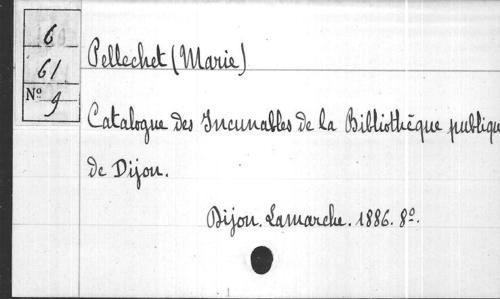 6
61
Nº 9
Pellechet (Marie)
Catalogue des Incunables de la Bibliothèque publique
de Dijon.
Dijon. Lamarche. 1886. 8º.